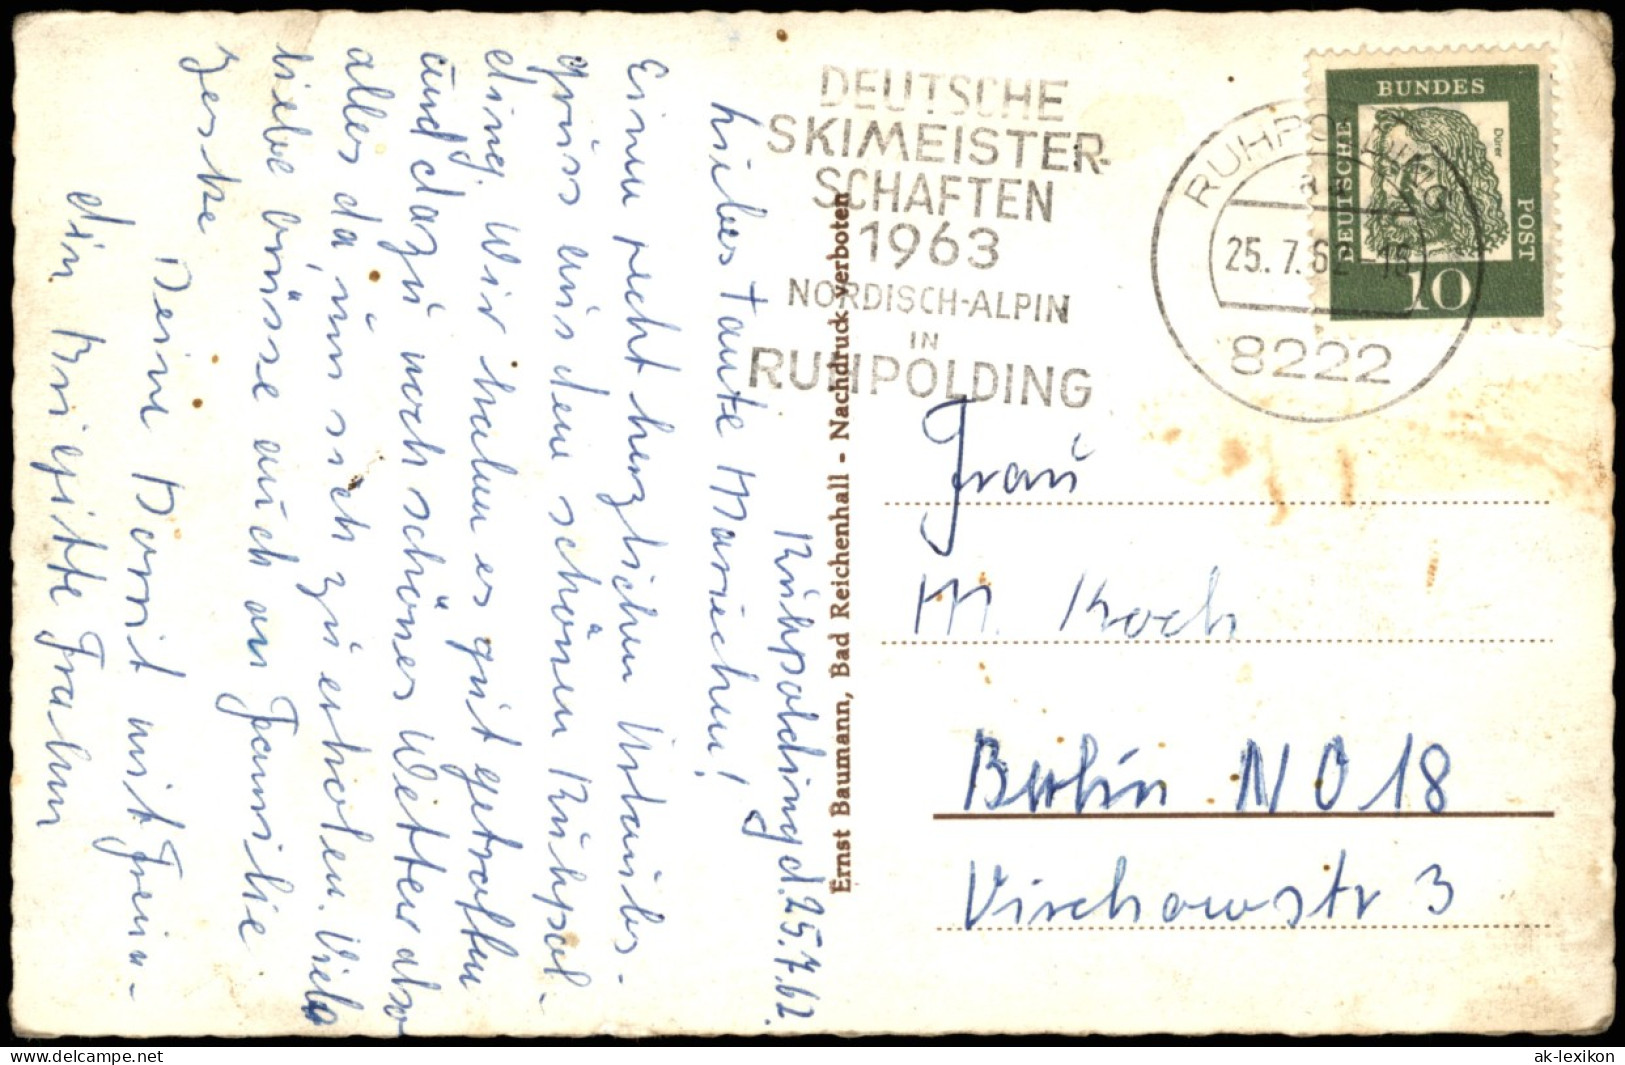 Ruhpolding d. 25.7.62.
Liebes Tante Mariechen!
Einen recht herzlichen Urlaubs-
gruss aus dem schönen Ruhpol-
ding. Wir haben es gut getroffen
und dazu noch schönes Wetter also
alles da um sich zu erholen. Viele
liebe Grüsse auch an Familie
Zeske
Deine Dorrit mit Freun-
din Brigitte Frahm
Ernst Baumann, Bad Reichenhall - Nachdruck verboten
DEUTSCHE
SKIMEISTER-
SCHAFTEN
1963
NORDISCH-ALPIN
IN
RUHPOLDING
RUHPOLDING
25.7.62
8222
DEUTSCHE
BUNDES
POST
Dürer
10
Frau
M. Koch
Berlin NO 18
Virchowstr 3
www.delcampe.net
ak-lexikon